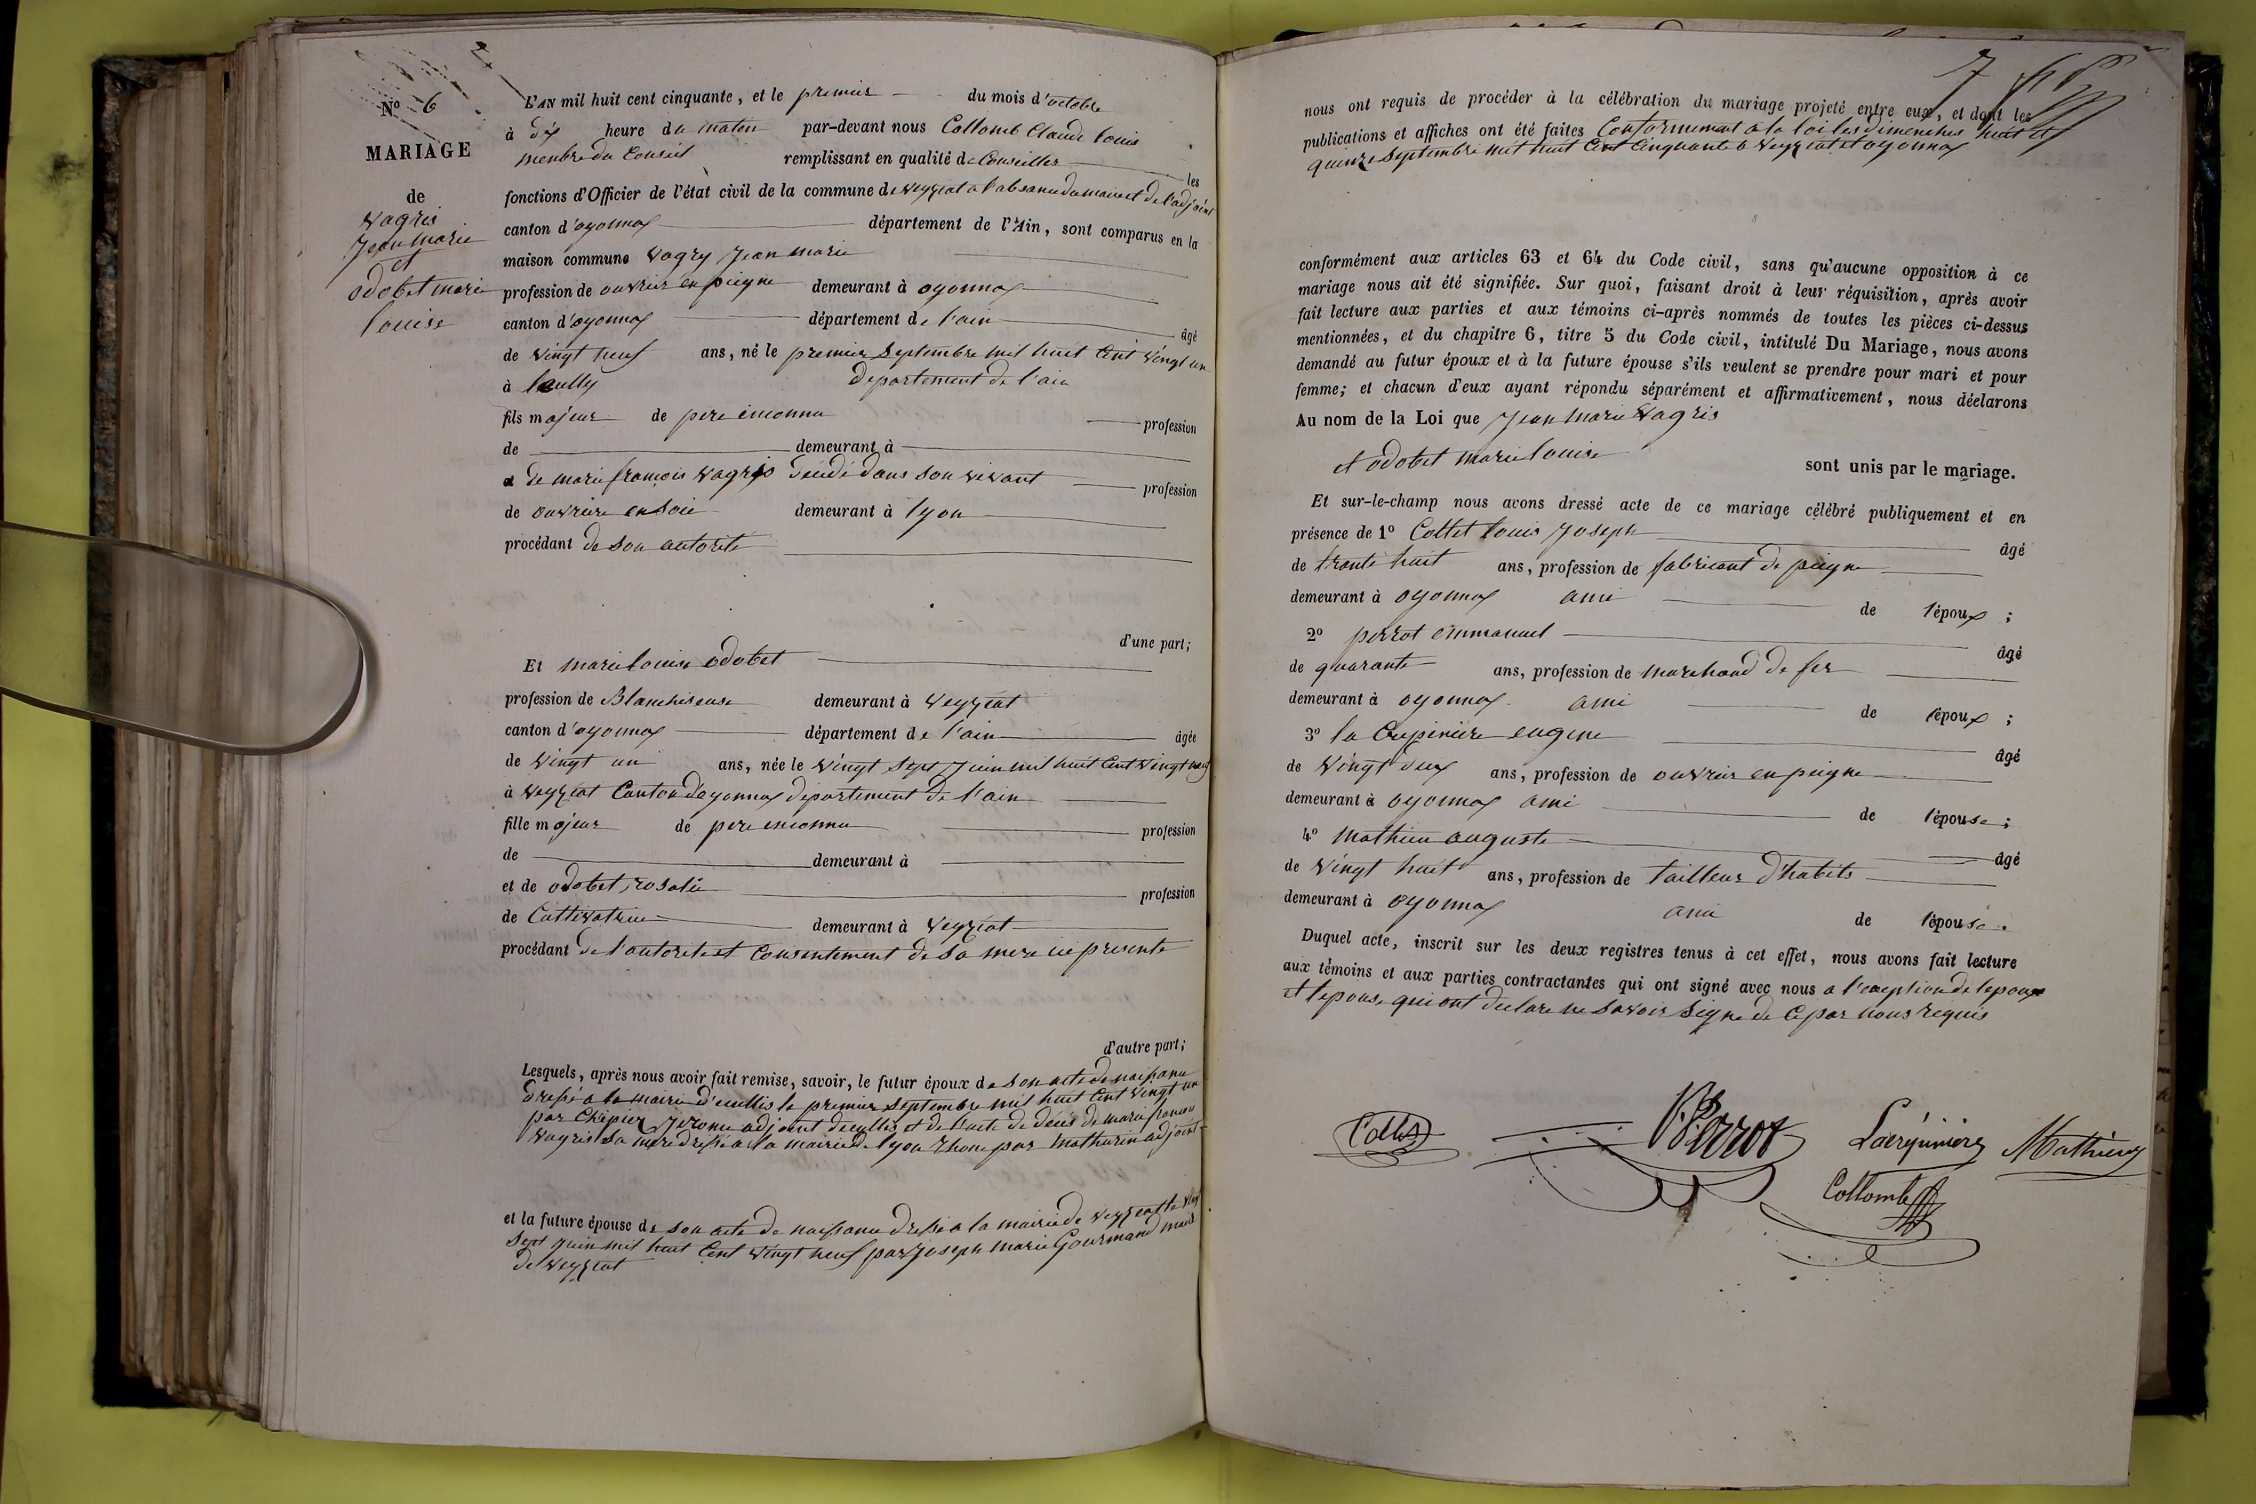 N° 6
MARIAGE
de
Vagris
Jean marie
et
odobet marie
louise
L'AN mil huit cent cinquante, et le premier du mois d'octobre
à dix heure du matin par-devant nous Collomb Claude louis
menbre du Conseil remplissant en qualité de Conseiller les
fonctions d'Officier de l'état civil de la commune de veyziat a l'absance du maire et de l'adjoint
canton d'oyonnax département de l'Ain, sont comparus en la
maison commune Vagry Jean marie
profession de ouvrier en peigne demeurant à oyonnax
canton d'oyonnax département de l'ain âgé
de vingt neuf ans, né le premier Septembre mil huit Cent vingt un
à departement de l'ain
fils majeur de pere inconnu profession
de demeurant à
de marie françois Vagris décédé dans son vivant profession
de ouvriere en soie demeurant à lyon
procédant de son autorité
d'une part;
Et marie louise odobet
profession de Blanchiseuse demeurant à Veyziat
canton d'oyonnax département de l'ain âgée
de vingt un ans, née le vingt Sept Juin mil huit Cent vingt neuf
à veyziat Canton d'oyonnax departement de l'ain
fille majeur de pere inconnu profession
de demeurant à
et de odobet rosalie profession
de Cultivatrice demeurant à veyziat
procédant de l'autorite et Consentement de Sa mere ici presente
d'autre part;
Lesquels, après nous avoir fait remise, savoir, le futur époux de Son acte de naissance
dressé a la mairie d'ecullis le premier Septembre mil huit Cent vingt un
par Chepier Jerome adjoint decullis et de l'acte de décès de marie françois
Vagris Sa mere dressé a la mairie de lyon rhone par Mathurin adjoint
et la future épouse de son acte de naissance dressé a la mairie de veyziat le vingt
Sept Juin mil huit Cent vingt neuf par Joseph marie Gourmand maire
de Veyziat
7
nous ont requis de procéder à la célébration du mariage projeté entre eux, et dont les
publications et affiches ont été faites Conformement a la loi les dimenches huit et
quinze Septembre mil huit Cent Cinquante a Veyziat et oyonnax
conformément aux articles 63 et 64 du Code civil, sans qu'aucune opposition à ce
mariage nous ait été signifiée. Sur quoi, faisant droit à leur réquisition, après avoir
fait lecture aux parties et aux témoins ci-après nommés de toutes les pièces ci-dessus
mentionnées, et du chapitre 6, titre 5 du Code civil, intitulé Du Mariage, nous avons
demandé au futur époux et à la future épouse s'ils veulent se prendre pour mari et pour
femme; et chacun d'eux ayant répondu séparément et affirmativement, nous déclarons
Au nom de la Loi que Jean Marie Vagris
et odobet marie louise sont unis par le mariage.
Et sur-le-champ nous avons dressé acte de ce mariage célébré publiquement et en
présence de 1° Collet louis Joseph âgé
de trante huit ans, profession de fabricant de peigne
demeurant à oyonnax ami de l'époux;
2° perrot emmanuel âgé
de quarante ans, profession de marchand de fer
demeurant à oyonnax ami de l'époux;
3° la Crepiniere eugene âgé
de vingt deux ans, profession de ouvrier en peigne
demeurant à oyonnax ami de l'épouse;
4° Mathieu auguste âgé
de vingt huit ans, profession de tailleur d'habits
demeurant à oyonnax ami de l'épouse.
Duquel acte, inscrit sur les deux registres tenus à cet effet, nous avons fait lecture
aux témoins et aux parties contractantes qui ont signé avec nous a l'exeption de lepoux
et lepouse qui ont declare ne savoir Signe de Ce par nous requis
Perrot
Lacrépinière
Mathieu
Collomb